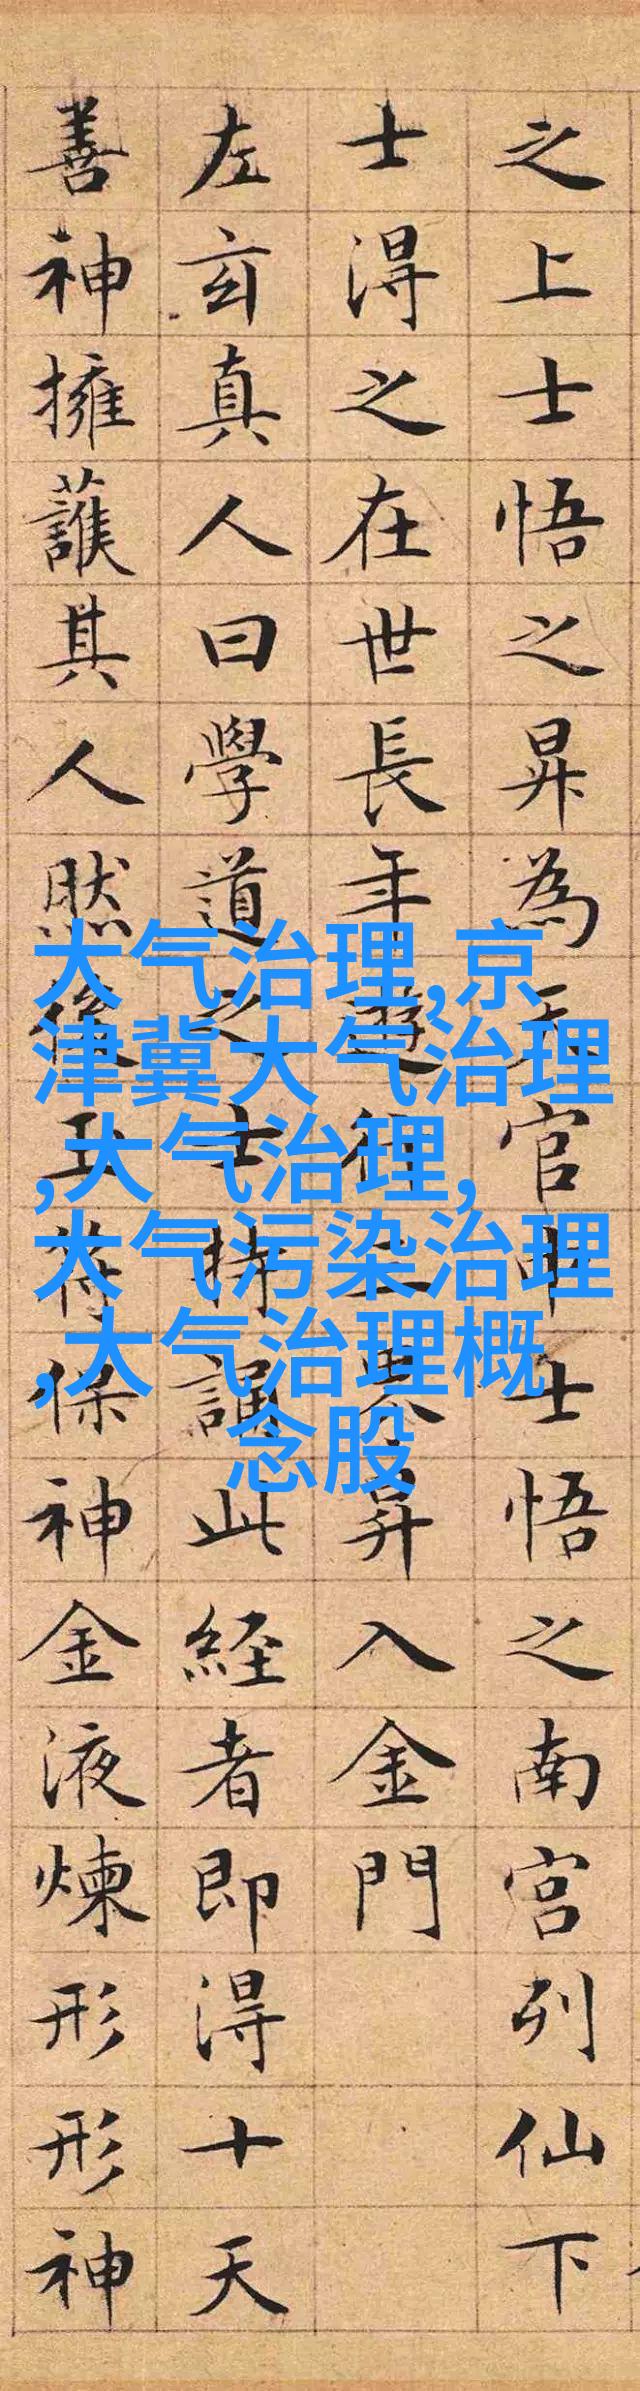 之上士悟之昇為天官中士悟之南宮列仙下
士得之在世長年遊行三界昇入金門
左玄真人曰學道之士持誦此經者即得十天
善神擁護其人然後玉符保神金液煉形形神
大气治理,京
津冀大气治理
,大气治理,
大气污染治理
,大气治理概
念股